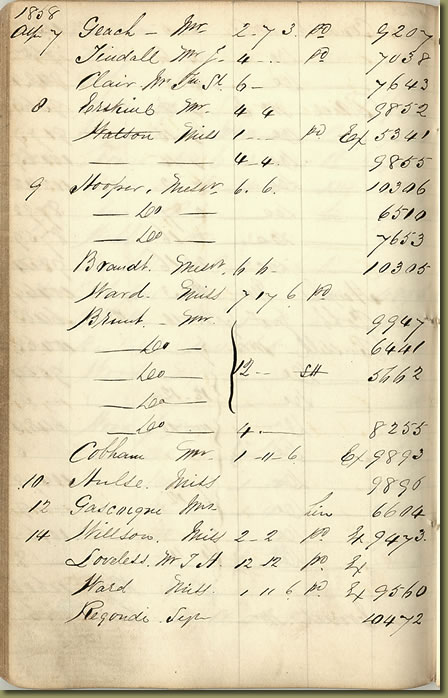 1858
Augt 7 Geach — Mr 2 - 7 3. pd 9207
Tindall Mr J. 4 - .. pd 7038
Clair, Mr Jn St. 6 — 7643
8 Erskine Mr. 4 4 9852
Watson Miss 1 - .. pd Ex 5341
— — 4 - 4. 9855
9 Hooper, Messrs. 6. 6. 10306
— Do — 6510
— Do — 7653
Brandt. Messrs 6 6 - 10305
Ward. Miss 7 17 6. pd
Brunt — Mr. 9947
— Do — 6441
— Do — 12 - - 5662
— Do —
— Do — 4. — 8255
Cobham Mr. 1 - 11 - 6 Ex 9893
.10 Hulse. Miss 9896
12 Gascoigne Mrs 6604
14 Willson. Miss 2 - 2 pd Ex 9473.
Loveless. Mr T H. 12 12 pd Ex
Ward Miss. 1 11 6 pd Ex 9560
Regondi. Sigr 10472